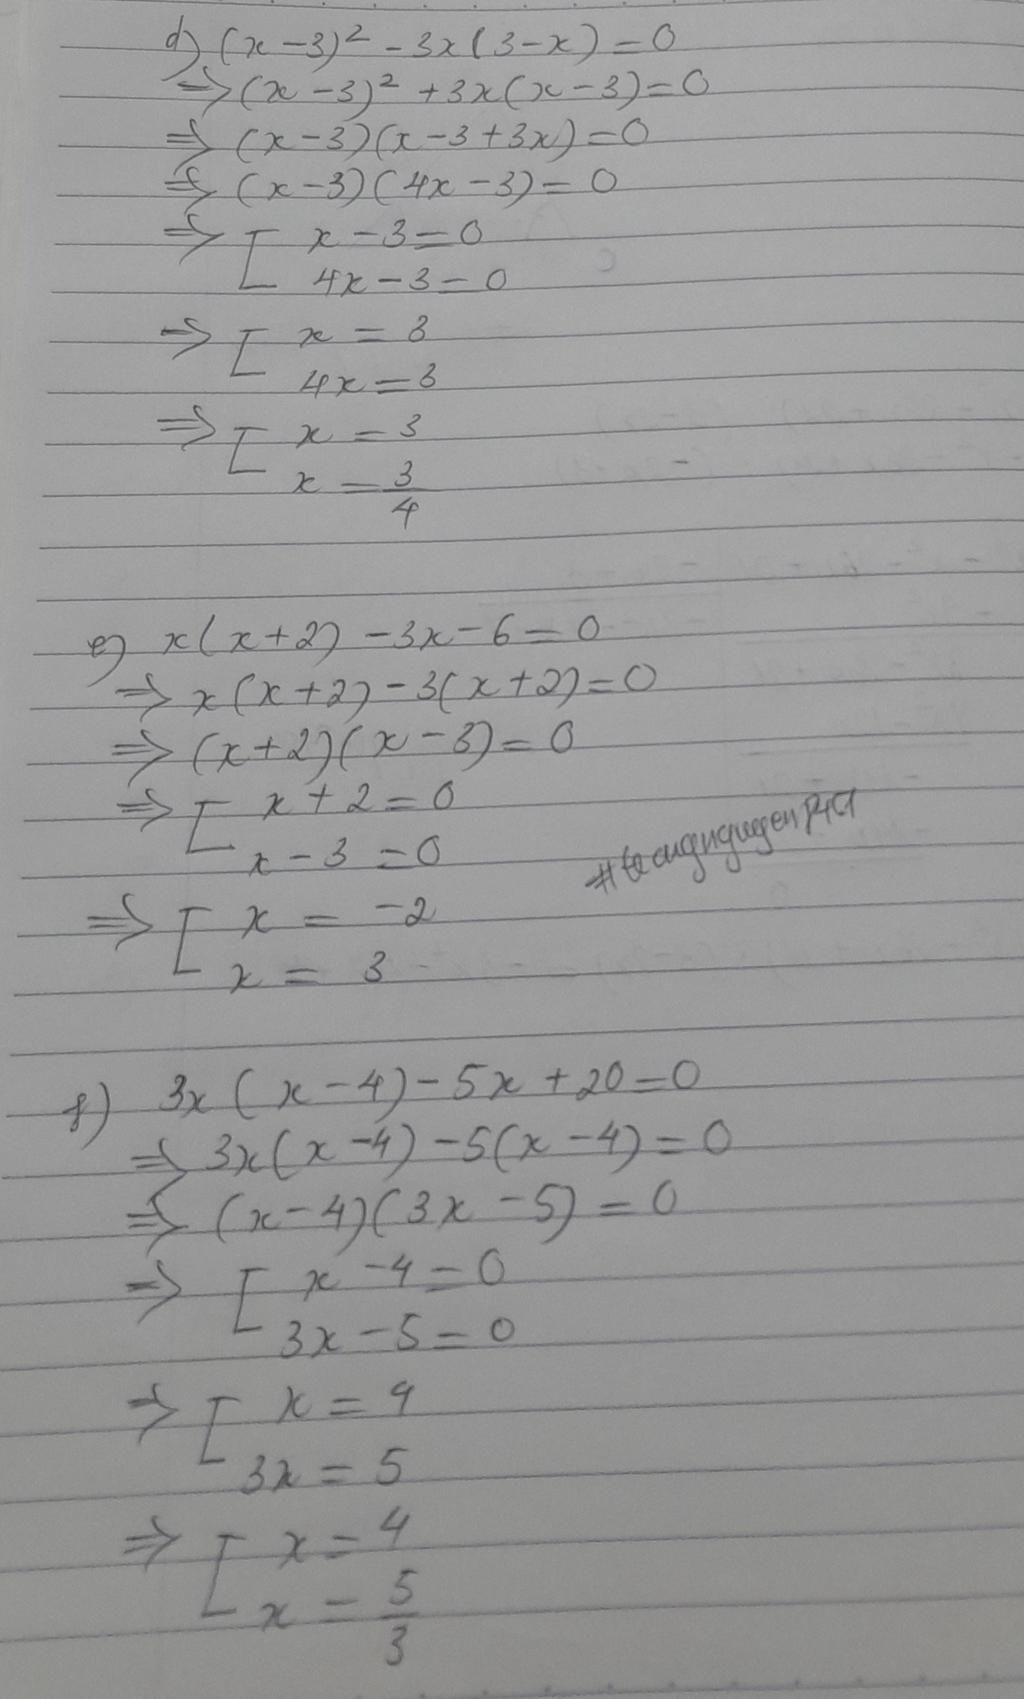 d) (x-3)² - 3x(3-x) = 0
⇒ (x-3)² + 3x(x-3) = 0
⇒ (x-3)(x-3+3x) = 0
⇒ (x-3)(4x-3) = 0
⇒ [ x-3 = 0
4x-3 = 0
⇒ [ x = 3
4x = 3
⇒ [ x = 3
x = 3/4
e) x(x+2) - 3x - 6 = 0
⇒ x(x+2) - 3(x+2) = 0
⇒ (x+2)(x-3) = 0
⇒ [ x+2 = 0
x-3 = 0
⇒ [ x = -2
x = 3
f) 3x(x-4) - 5x + 20 = 0
⇒ 3x(x-4) - 5(x-4) = 0
⇒ (x-4)(3x-5) = 0
⇒ [ x-4 = 0
3x-5 = 0
⇒ [ x = 4
3x = 5
⇒ [ x = 4
x = 5/3